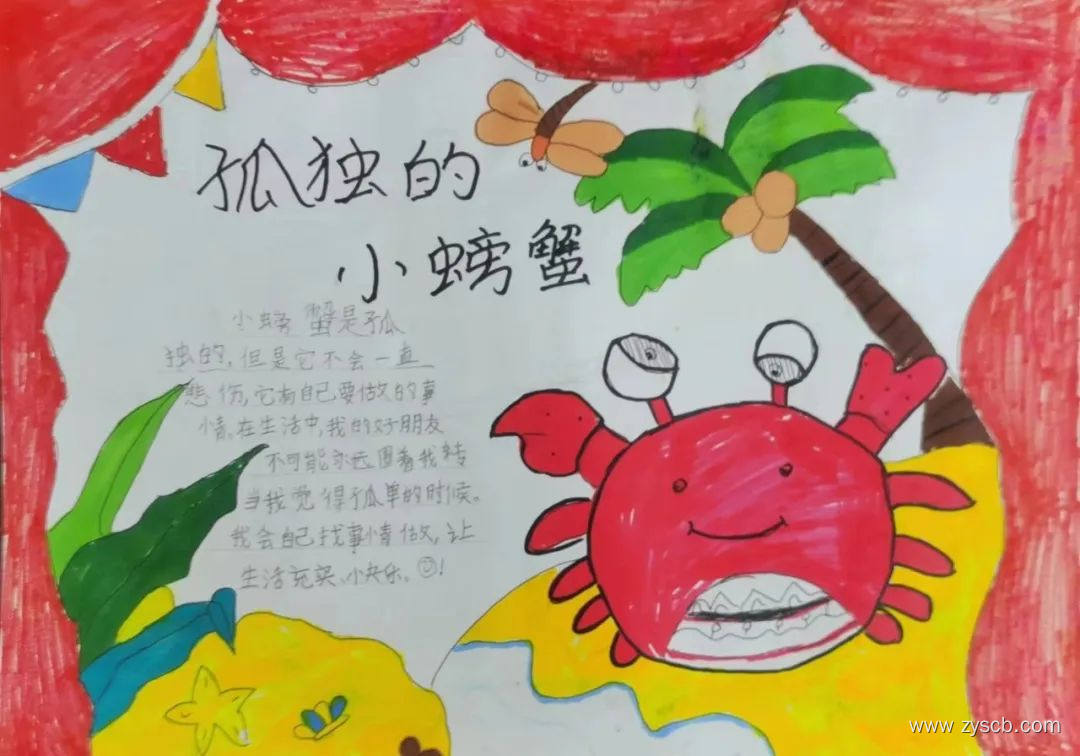 孤独的
小螃蟹
小螃蟹是孤
独的,但是它不会一直
悲伤,它有自己要做的事
情。在生活中,我的好朋友
不可能永远围着我转
当我觉得孤单的时候。
我会自己找事情做,让
生活充实、小快乐。☺!
www.zyscb.com